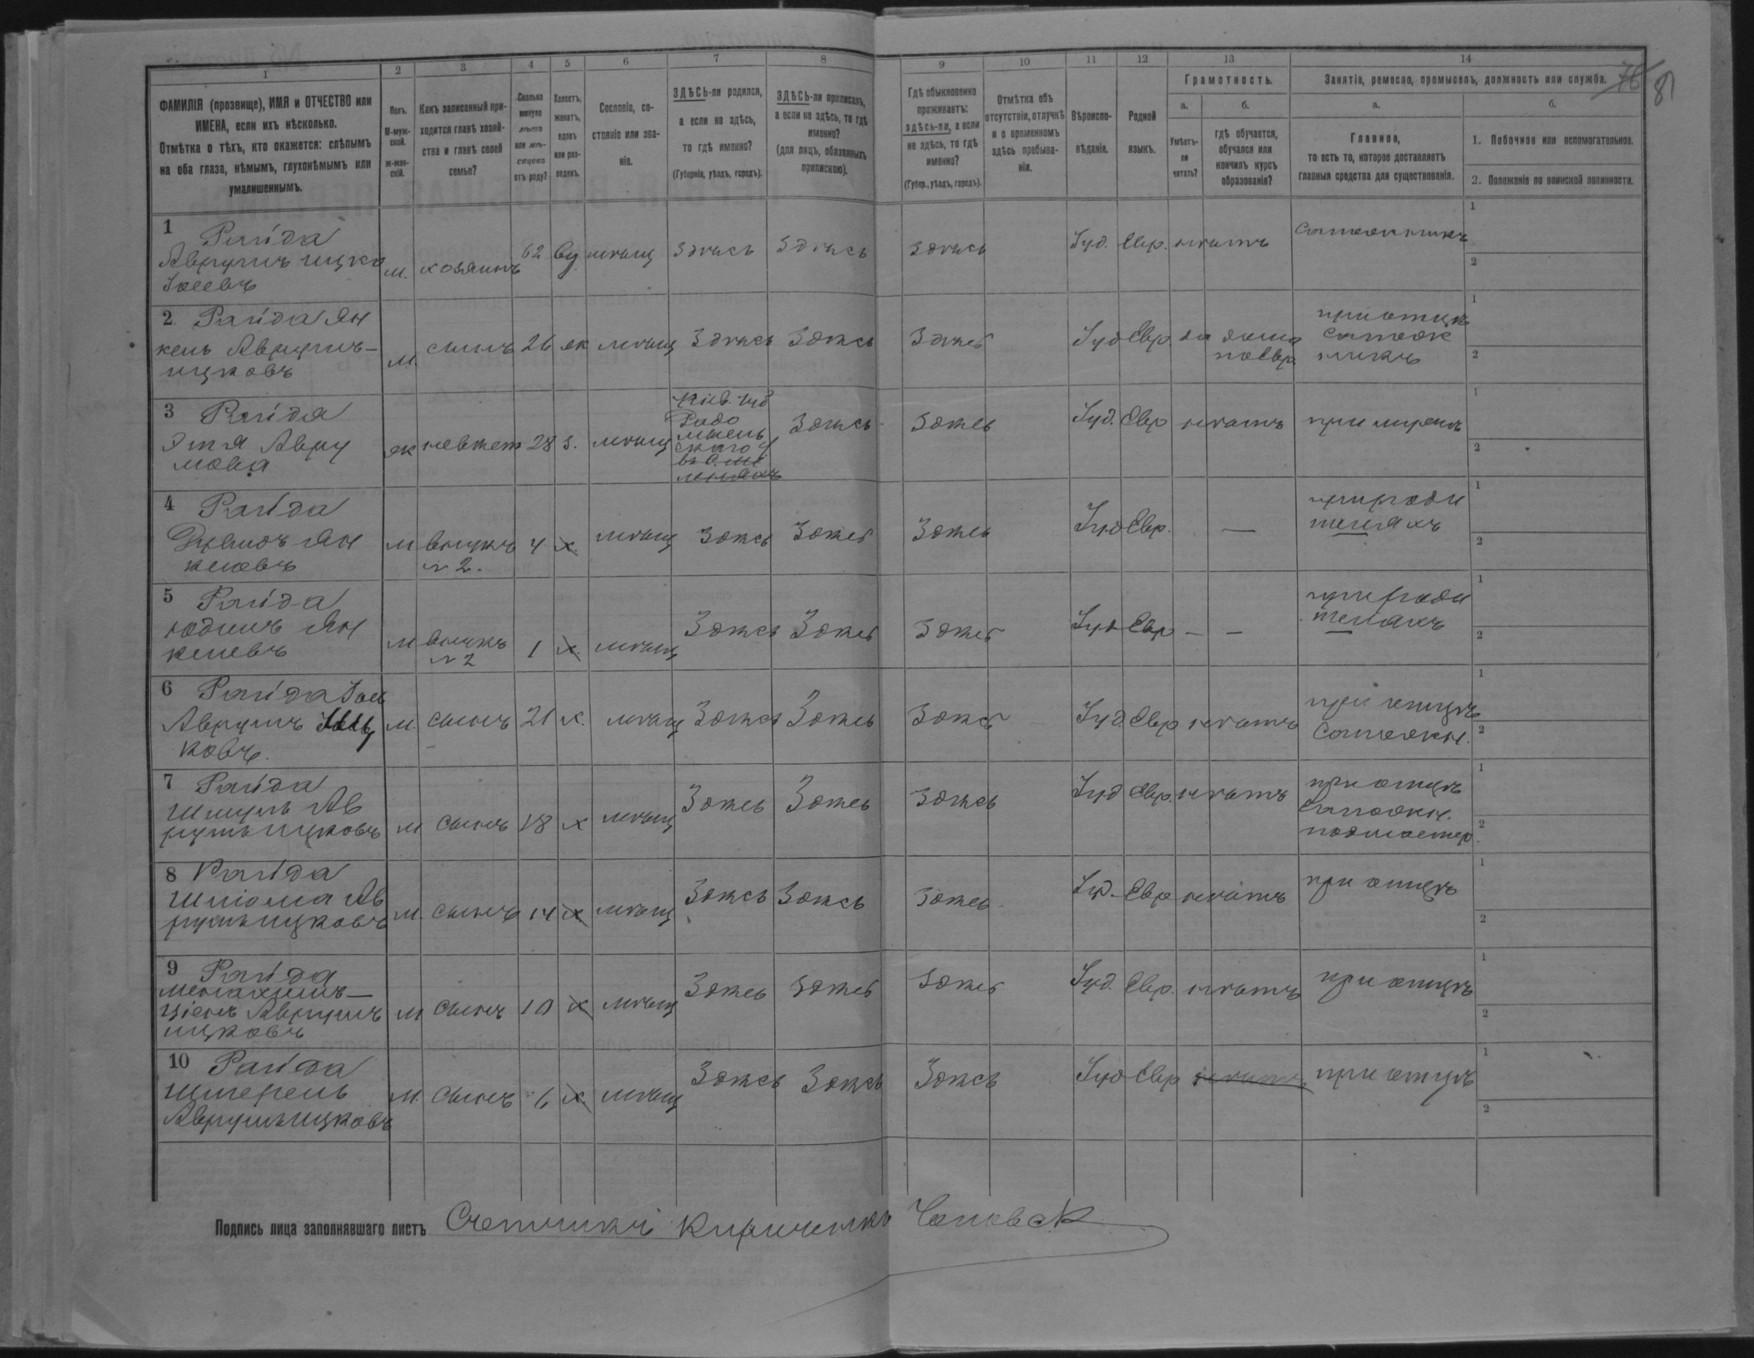 1 2 3 4 5 6 7 8 9 10 11 12 13 14
ФАМИЛІЯ (прозвище), ИМЯ и ОТЧЕСТВО или
ИМЕНА, если ихъ нѣсколько.
Отмѣтка о тѣхъ, кто окажется: слѣпымъ
на оба глаза, нѣмымъ, глухонѣмымъ или
умалишеннымъ.
Полъ.
М-муж-
ской.
Ж-жен-
скій.
Какъ записанный при-
ходится главѣ хозяй-
ства и главѣ своей
семьи?
Сколько
минуло
лѣтъ
или мѣ-
сяцевъ
отъ роду?
Холостъ,
женатъ,
вдовъ
или раз-
веденъ.
Сословіе, со-
стояніе или зва-
ніе.
ЗДѢСЬ-ли родился,
а если не здѣсь,
то гдѣ именно?
(Губернія, уѣздъ, городъ).
ЗДѢСЬ-ли приписанъ,
а если не здѣсь, то гдѣ
именно?
(для лицъ, обязанныхъ
припискою).
Гдѣ обыкновенно
проживаетъ:
здѣсь-ли, а если
не здѣсь, то гдѣ
именно?
(Губер., уѣздъ, городъ).
Отмѣтка объ
отсутствіи, отлучкѣ
и о временномъ
здѣсь пребыва-
ніи.
Вѣроиспо-
вѣданіе.
Родной
языкъ.
Грамотность.
а.
Умѣетъ-
ли
читать?
б.
гдѣ обучается,
обучался или
кончилъ курсъ
образованія?
Занятіе, ремесло, промыселъ, должность или служба.
а.
Главное,
то есть то, которое доставляетъ
главныя средства для существованія.
б.
1. Побочное или вспомогательное.
2. Положеніе по воинской повинности.
76 81
1 Райда
Аврумъ Ицко
м. хозяинъ 62 вд мѣщ здѣсь здѣсь здѣсь Іуд. Евр. нѣтъ
1
2
2 Райда Ян
кель Аврумъ-
ицковъ
м сынъ 26 ж мѣщ Здѣсь Здѣсь Здѣсь Іуд Евр да дома
по Евр
при отцѣ
1
2
3 Райда
Авру
мова
ж невѣст 28 з. мѣщ
Кіев. губ
Радо
мысль
скаго у
Здѣсь Здѣсь Іуд. Евр нѣтъ при мужѣ
1
2
4 Райда
Ян
келевъ
м внукъ
№ 2.
4 х. мѣщ Здѣсь Здѣсь Здѣсь Іуд Евр. —
при роди
теляхъ
1
2
5 Райда
Ян
келевъ
м внукъ
№ 2
1 х. мѣщ Здѣсь Здѣсь Здѣсь Іуд Евр — —
при роди
теляхъ
1
2
6 Райда
Аврумъ Иц
ковъ.
м. сынъ 21 х. мѣщ Здѣсь Здѣсь Здѣсь Іуд Евр нѣтъ
при отцѣ
1
2
7 Райда
Шмуль Ав
румъ Ицковъ
м сынъ 18 х мѣщ Здѣсь Здѣсь Здѣсь Іуд Евр. нѣтъ
при отцѣ
подмастер.
1
2
8 Райда
Шліома Ав
румъ Ицковъ
м. сынъ 14 х мѣщ Здѣсь Здѣсь Здѣсь Іуд. Евр нѣтъ при отцѣ
1
2
9 Райда
Аврумъ
ицковъ
м сынъ 10 х мѣщ Здѣсь Здѣсь Здѣсь Іуд. Евр. нѣтъ при отцѣ
1
2
10 Райда
Аврумъ Ицковъ
м сынъ 6 х мѣщ Здѣсь Здѣсь Здѣсь Іуд Евр нѣтъ при отцѣ
1
2
Подпись лица заполнявшаго листъ Счетчикъ